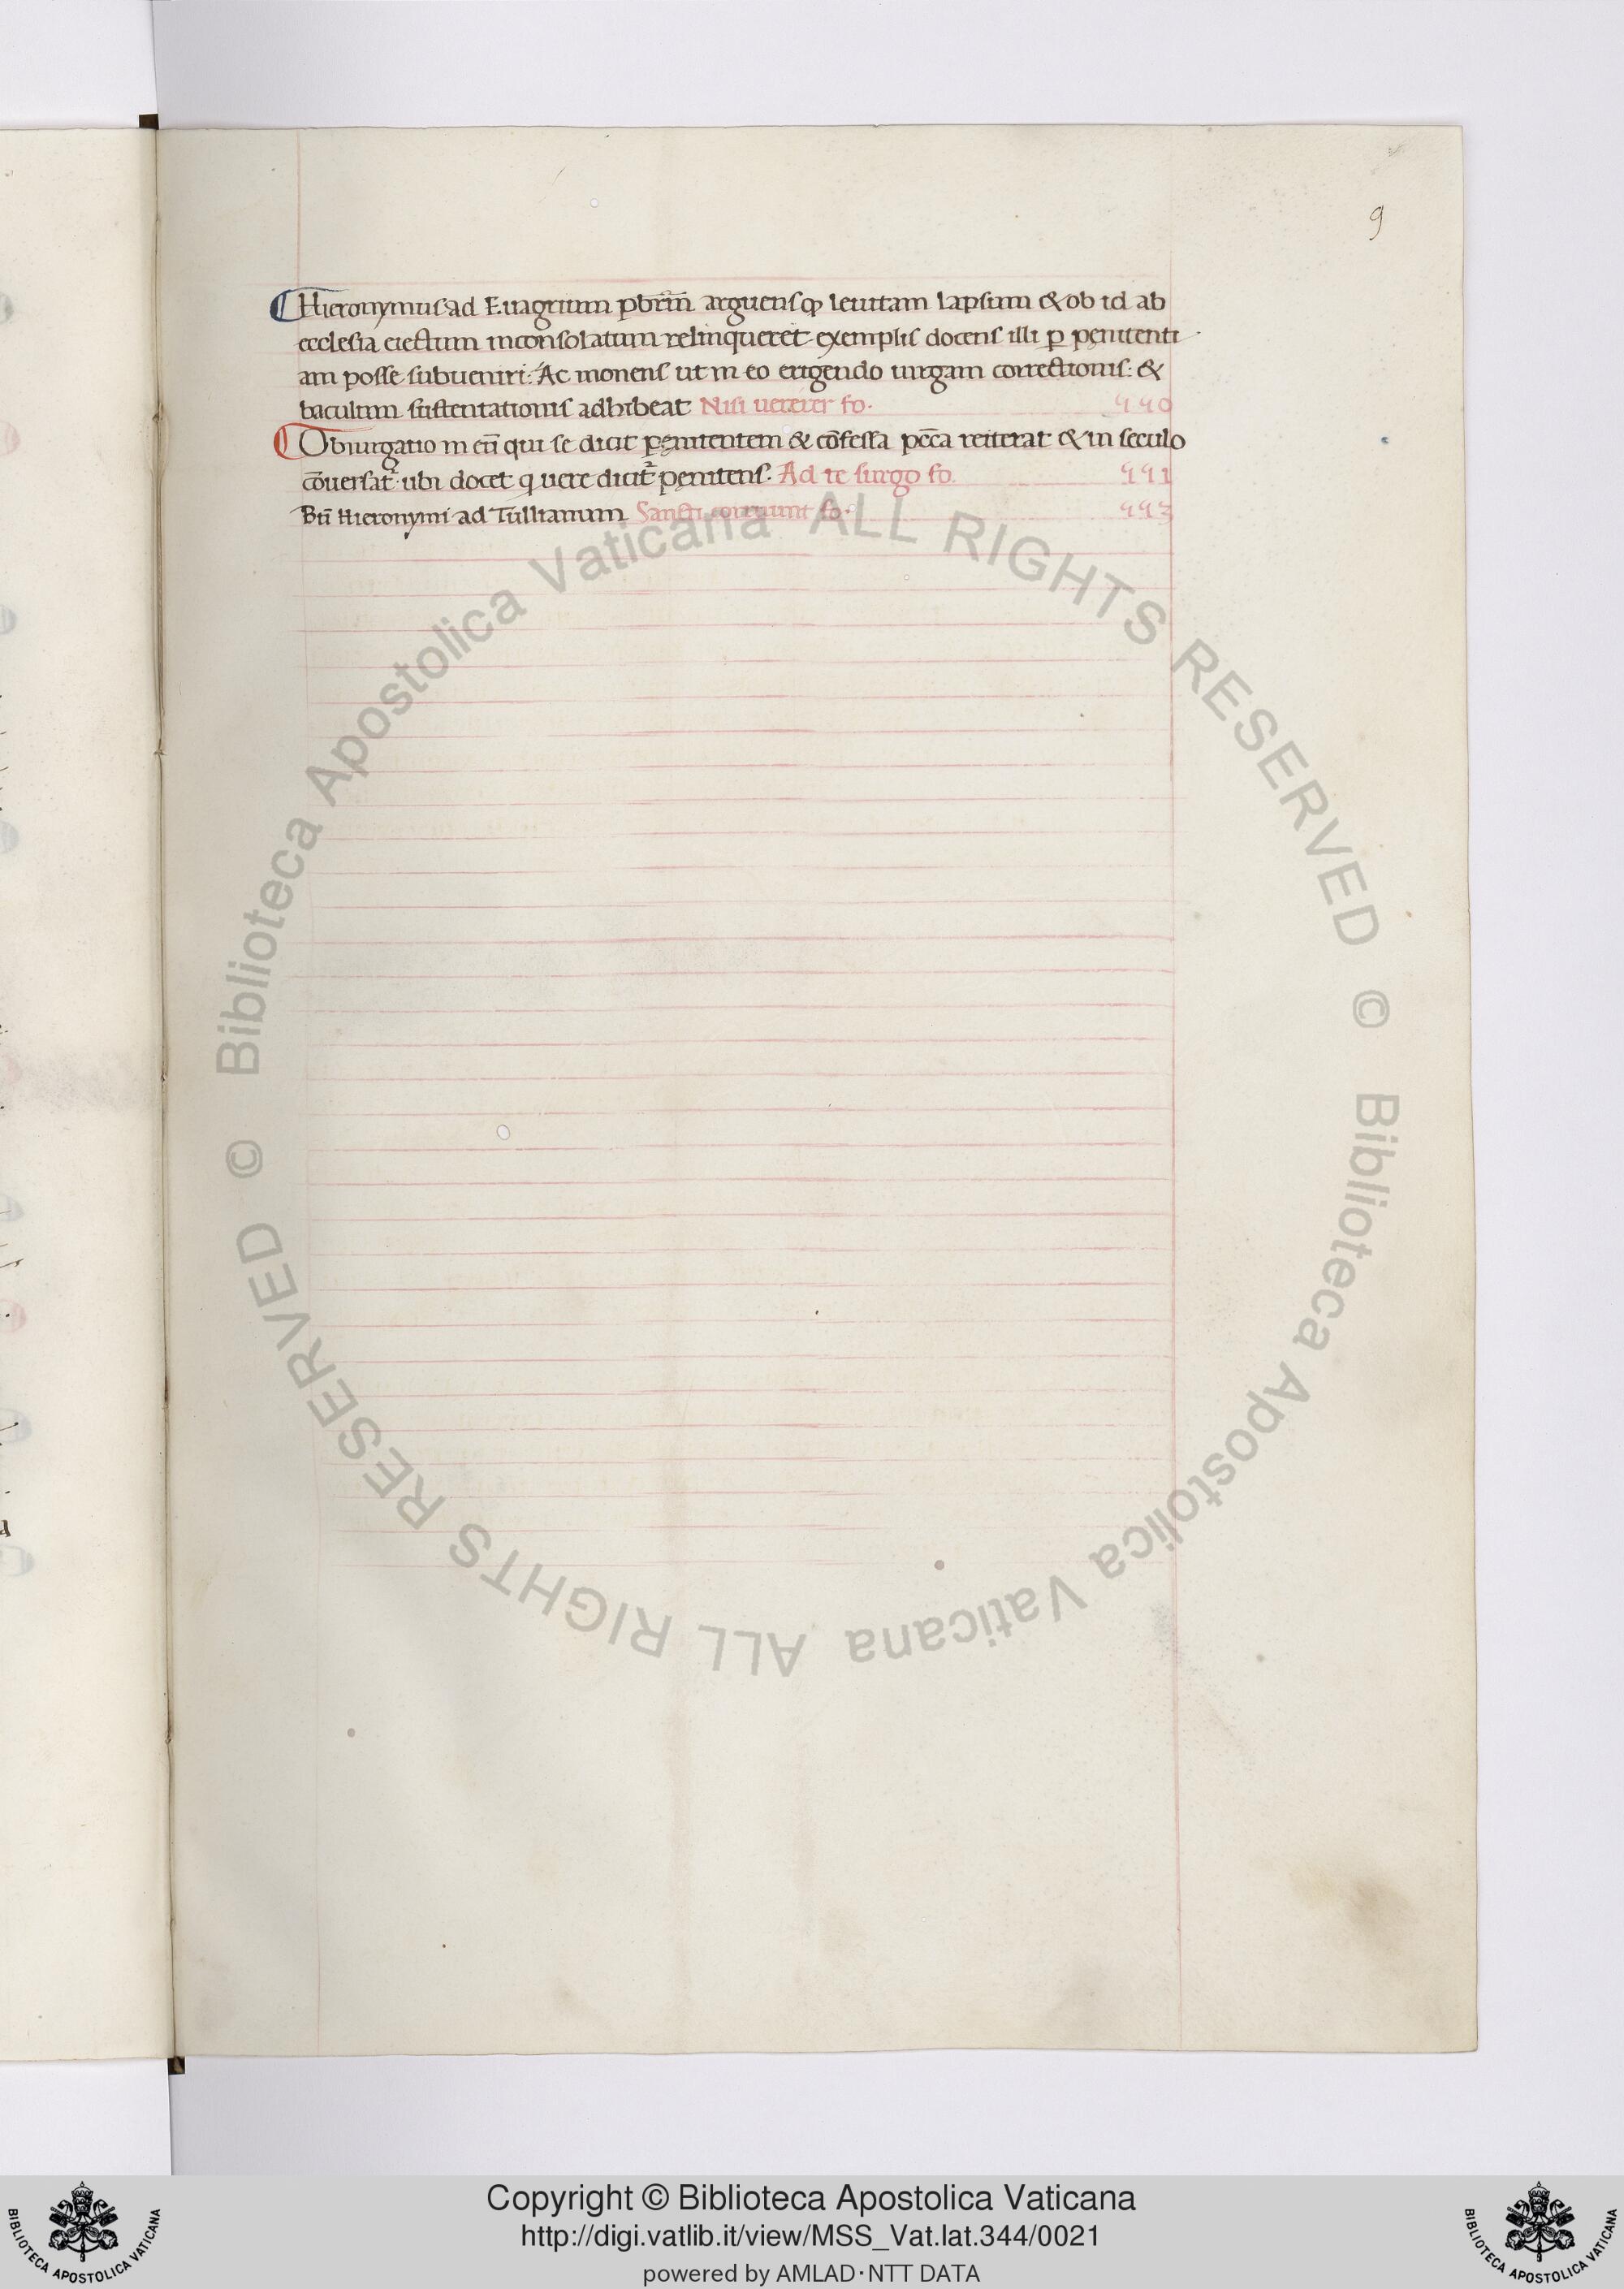 9
Hieronymus ad Euagrium pbr̄m̄ arguens ꝙ leuitam lapsum & ob id ab
ecclesia eiectum inconsolatum relinqueret exemplis docens illi ꝑ pęnitenti
am posse subueniri: Ac monens ut in eo erigendo uirgam correctionis: &
baculum sustentationis adhibeat Nisi vererer fo. 440
Obiurgatio in eū qui se dicit pęnitentem & cōfessa pcc̄a reiterat & in seculo
cōuersat᷑ ubi docet q uere dicit᷑ pęnitens. Ad te surgo fo. 441
Btī Hieronymi ad Tullianum Sancti corruunt fo. 443
© Biblioteca Apostolica Vaticana ALL RIGHTS RESERVED
© Biblioteca Apostolica Vaticana ALL RIGHTS RESERVED
Copyright © Biblioteca Apostolica Vaticana
http://digi.vatlib.it/view/MSS_Vat.lat.344/0021
powered by AMLAD·NTT DATA
BIBLIOTECA APOSTOLICA VATICANA
BIBLIOTECA APOSTOLICA VATICANA